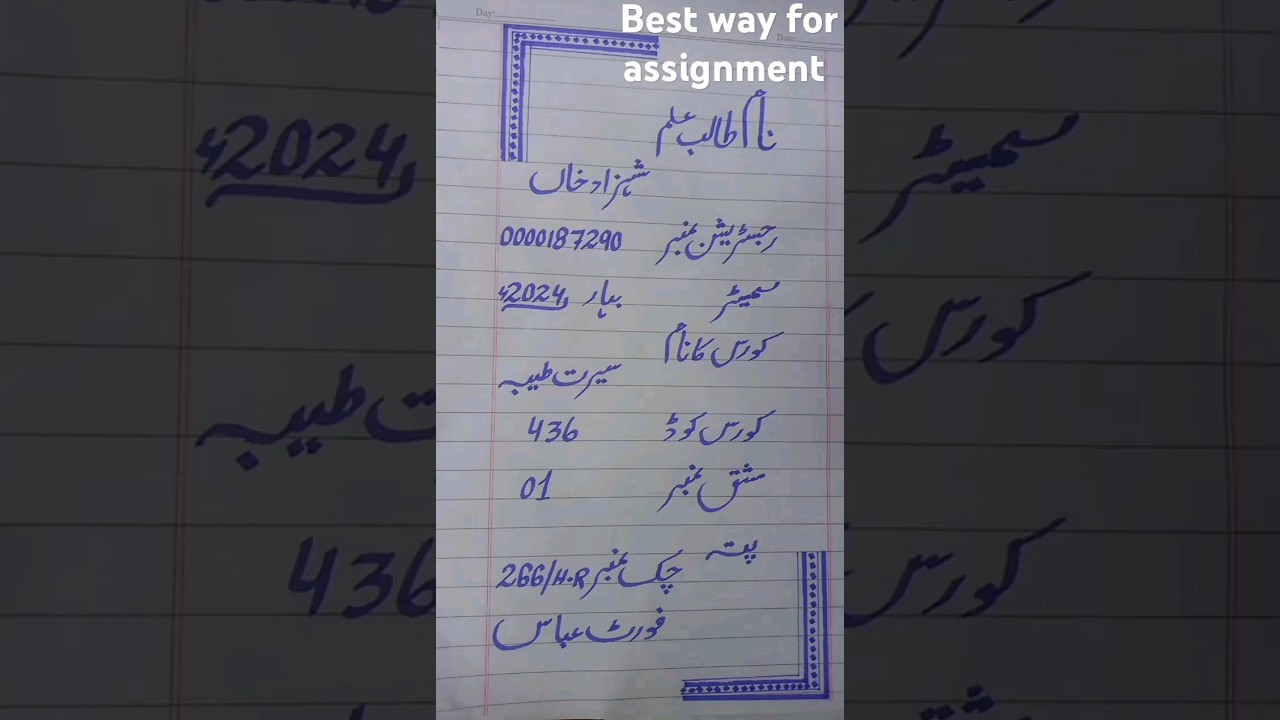 Day:
Date
Best way for
assignment
نام طالب علم
شہزاد خاں
رجسٹریشن نمبر 0000187290
سمیٹر بہار 2024ء
کورس کا نام
سیرت طیبہ
کورس کوڈ 436
مشق نمبر 01
پتہ
چک نمبر 266/H.R
فورٹ عباس